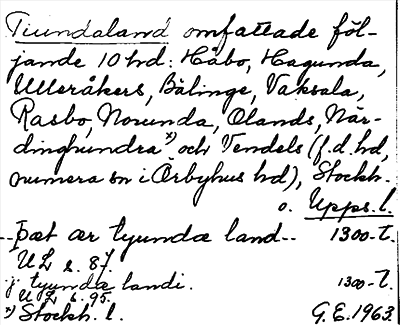 Tiundaland omfattade föl-
jande 10 hd: Håbo, Hagunda,
Ulleråkers, Bälinge, Vaksala,
Rasbo, Norunda, Olands, När-
dinghundra *) och Vendels (f.d. hd,
numera sn i Örbyhus hd), Stockh.
o. Upps. l.
--þæt ær tyundæ land-- 1300-t.
UL s. 87.
j tyundæ landi. 1300-t.
UL s. 95.
*) Stockh. l. G.E. 1963.